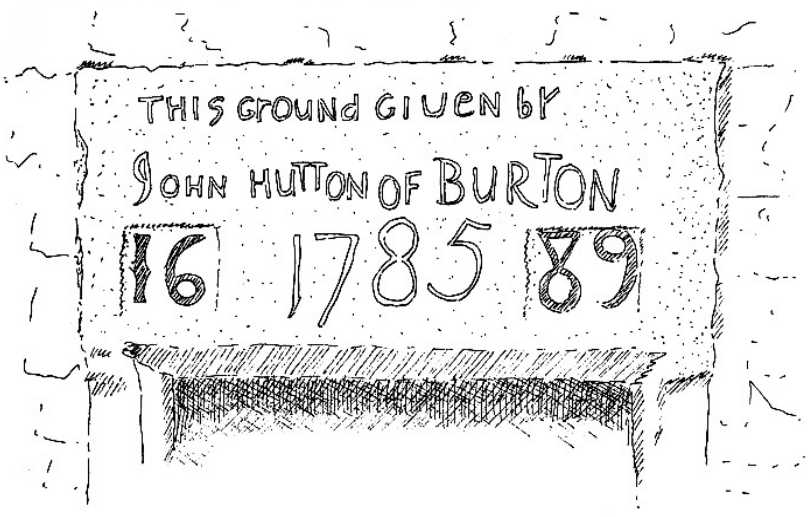 THIS GrOUNd GIUEN bY
JOHN HUTTON OF BURTON
16 1785 89